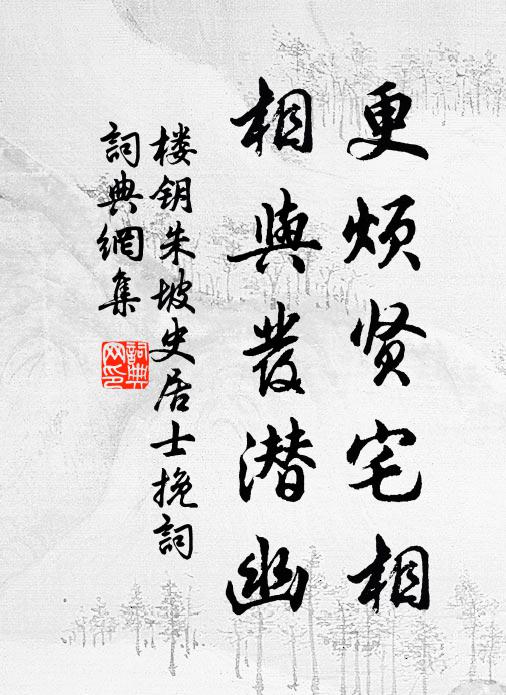 更烦贤宅相
相與發潜幽
楼钥朱坡史居士挽詞
詞典網集
詞典网印